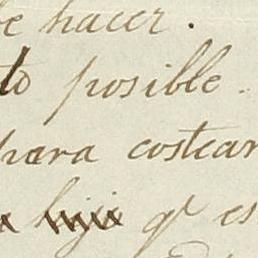 be hacer.
to posible
para costear
hija qe es